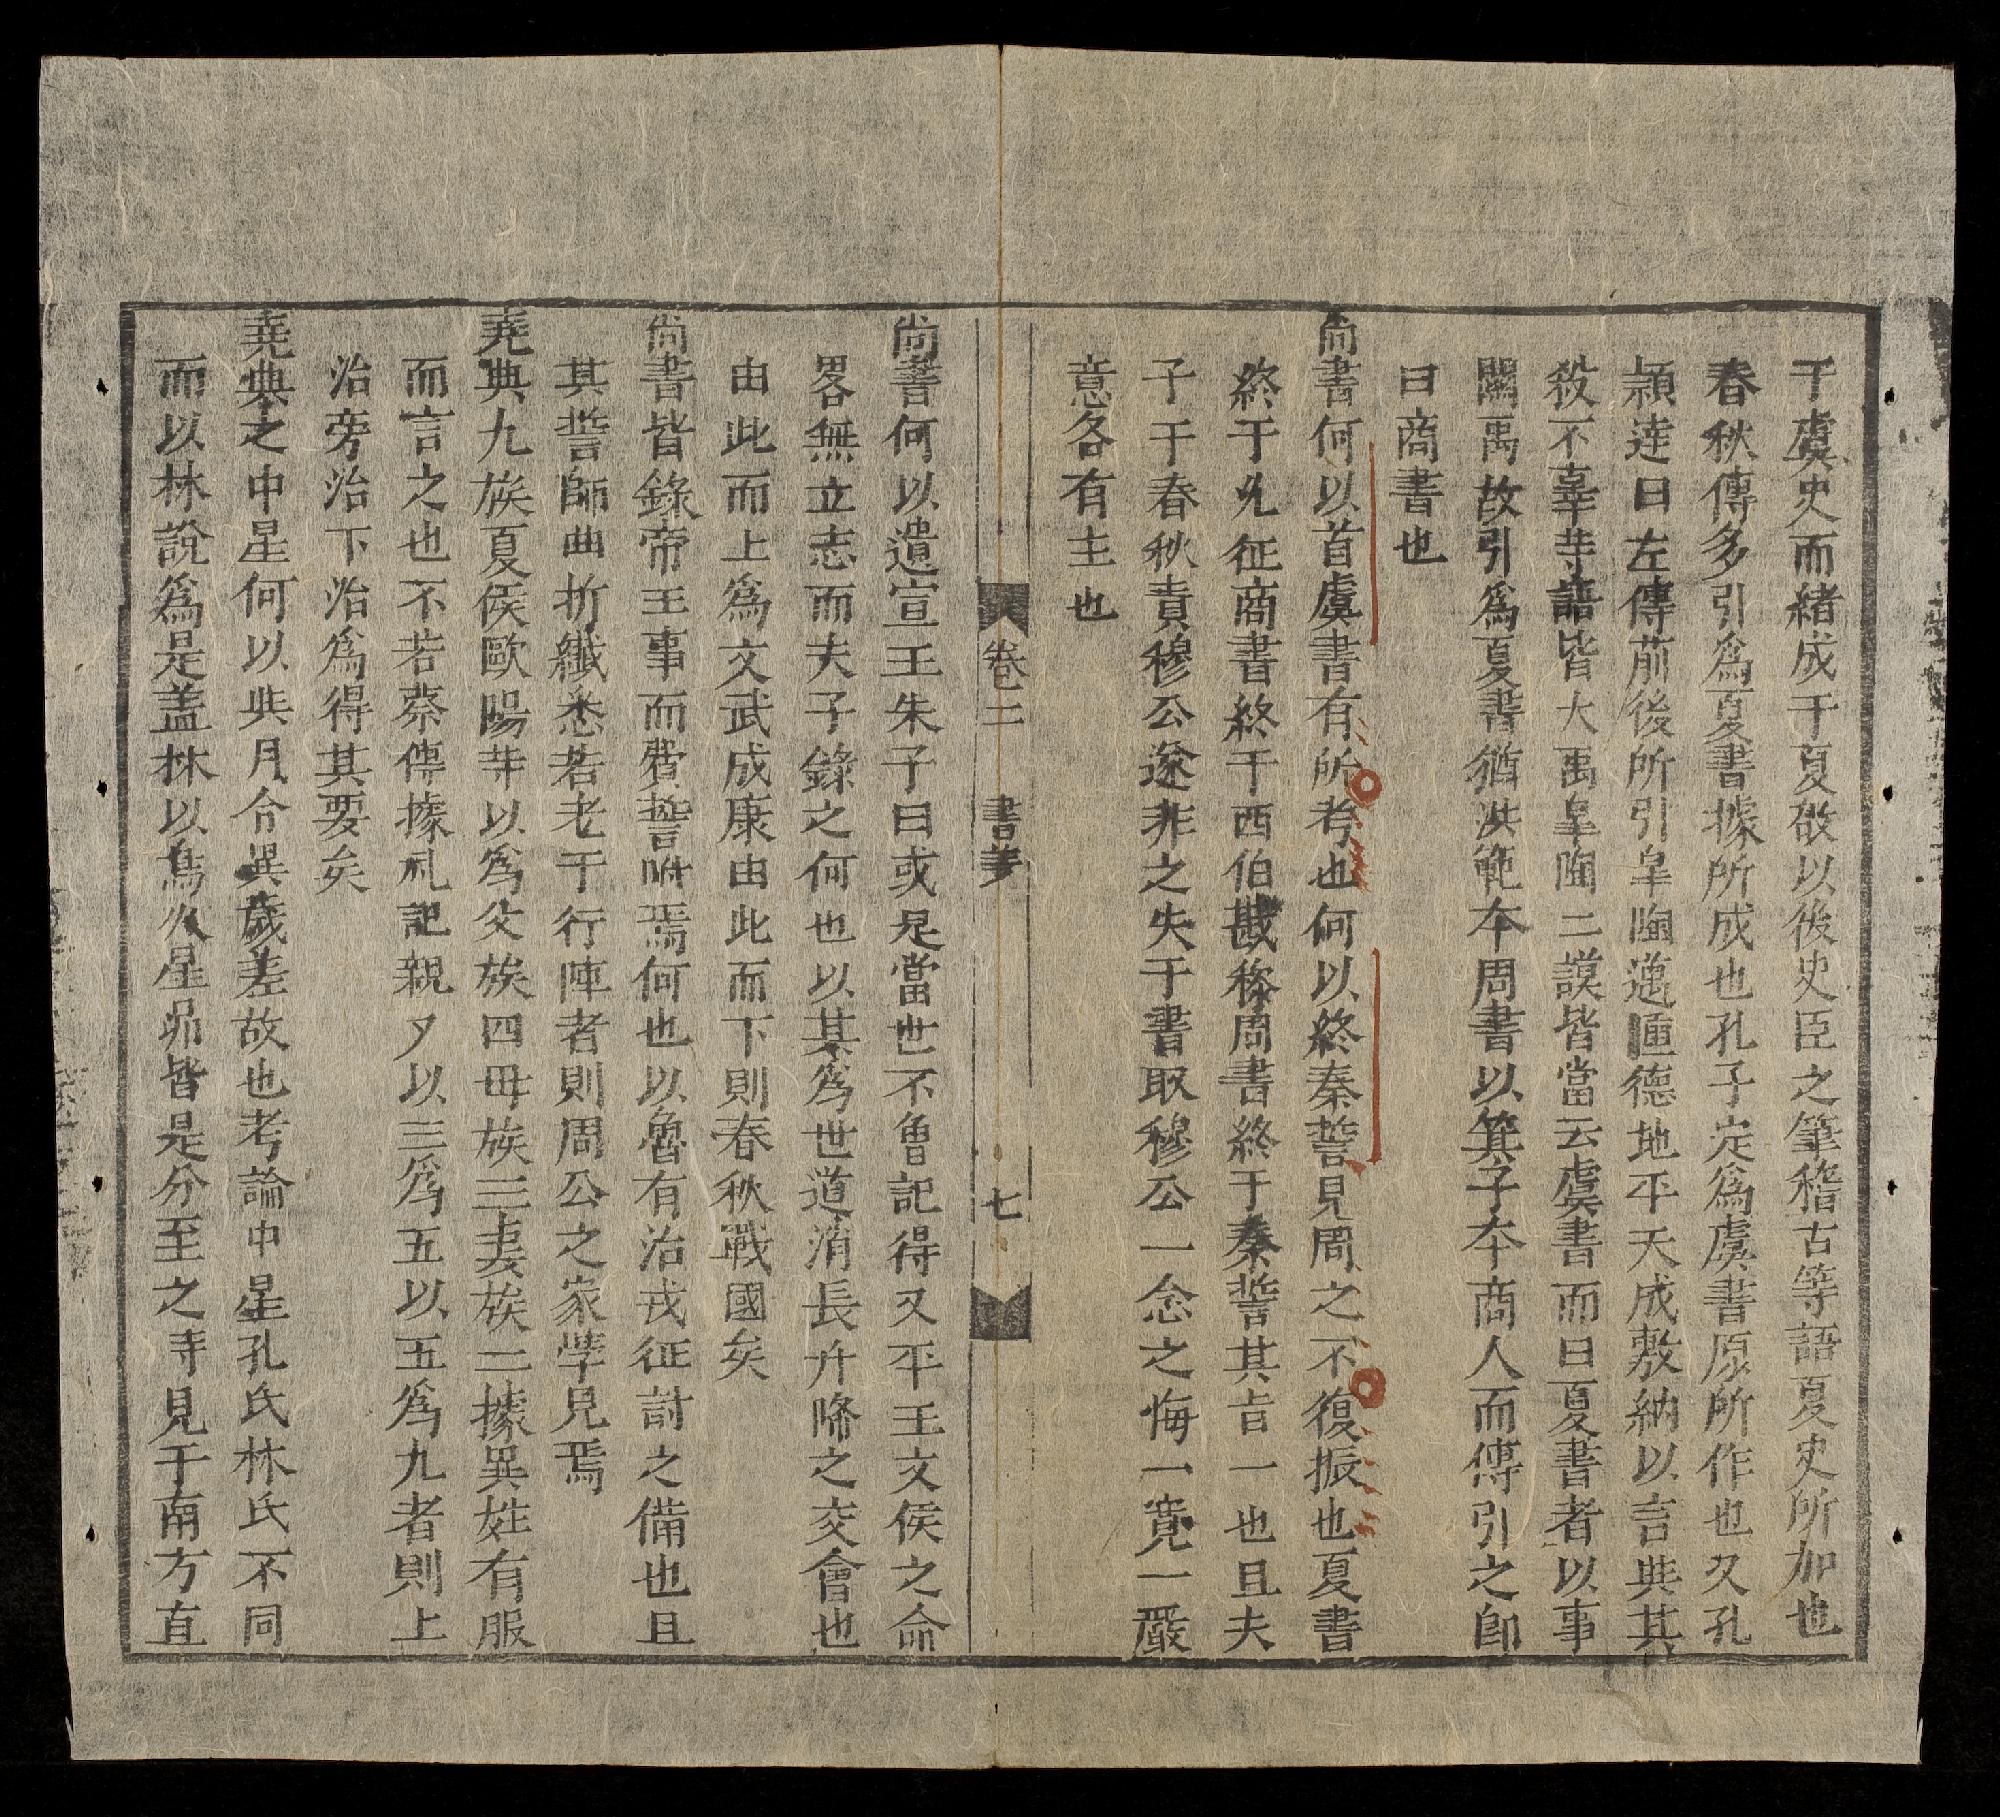 于虞史而緒成于夏故以後史臣之筆稽古等語夏史所加也
春秋傳多引爲夏書據所成也孔子定爲虞書原所作也又孔
頴逹曰左傳前後所引臯陶邁種德地平天成敷納以言與其
殺不辜䓁語皆大禹臯陶二謨皆當云虞書而曰夏書者以事
關禹故引爲夏書猶洪範本周書以箕子本商人而傳引之即
曰商書也
尚書何以首虞書有所考也何以終秦誓見周之不復振也夏書
終于㣧征商書終于西伯戡黎周書終于秦誓其㫖一也且夫
子于春秋責穆公遂非之失于書取穆公一念之悔一寛一嚴
意各有主也
卷二　書義　七
尚書何以遺宣王朱子曰或是當世不曾記得又平王文侯之命
畧無立志而夫子錄之何也以其爲世道消長升降之交會也
由此而上爲文武成康由此而下則春秋戰國矣
尚書皆錄帝王事而費誓附焉何也以魯有治戎征討之備也且
其誓師曲折纖悉若老于行陣者則周公之家學見焉
堯典九族夏侯歐陽䓁以爲父族四母族三妻族二據異姓有服
而言之也不若蔡傳據礼記親親以三爲五以五爲九者則上
治旁治下治爲得其要矣
堯典之中星何以與月令異歲差故也考論中星孔氏林氏不同
而以林說爲是盖林以鳥火星昴皆是分至之寺見于南方直